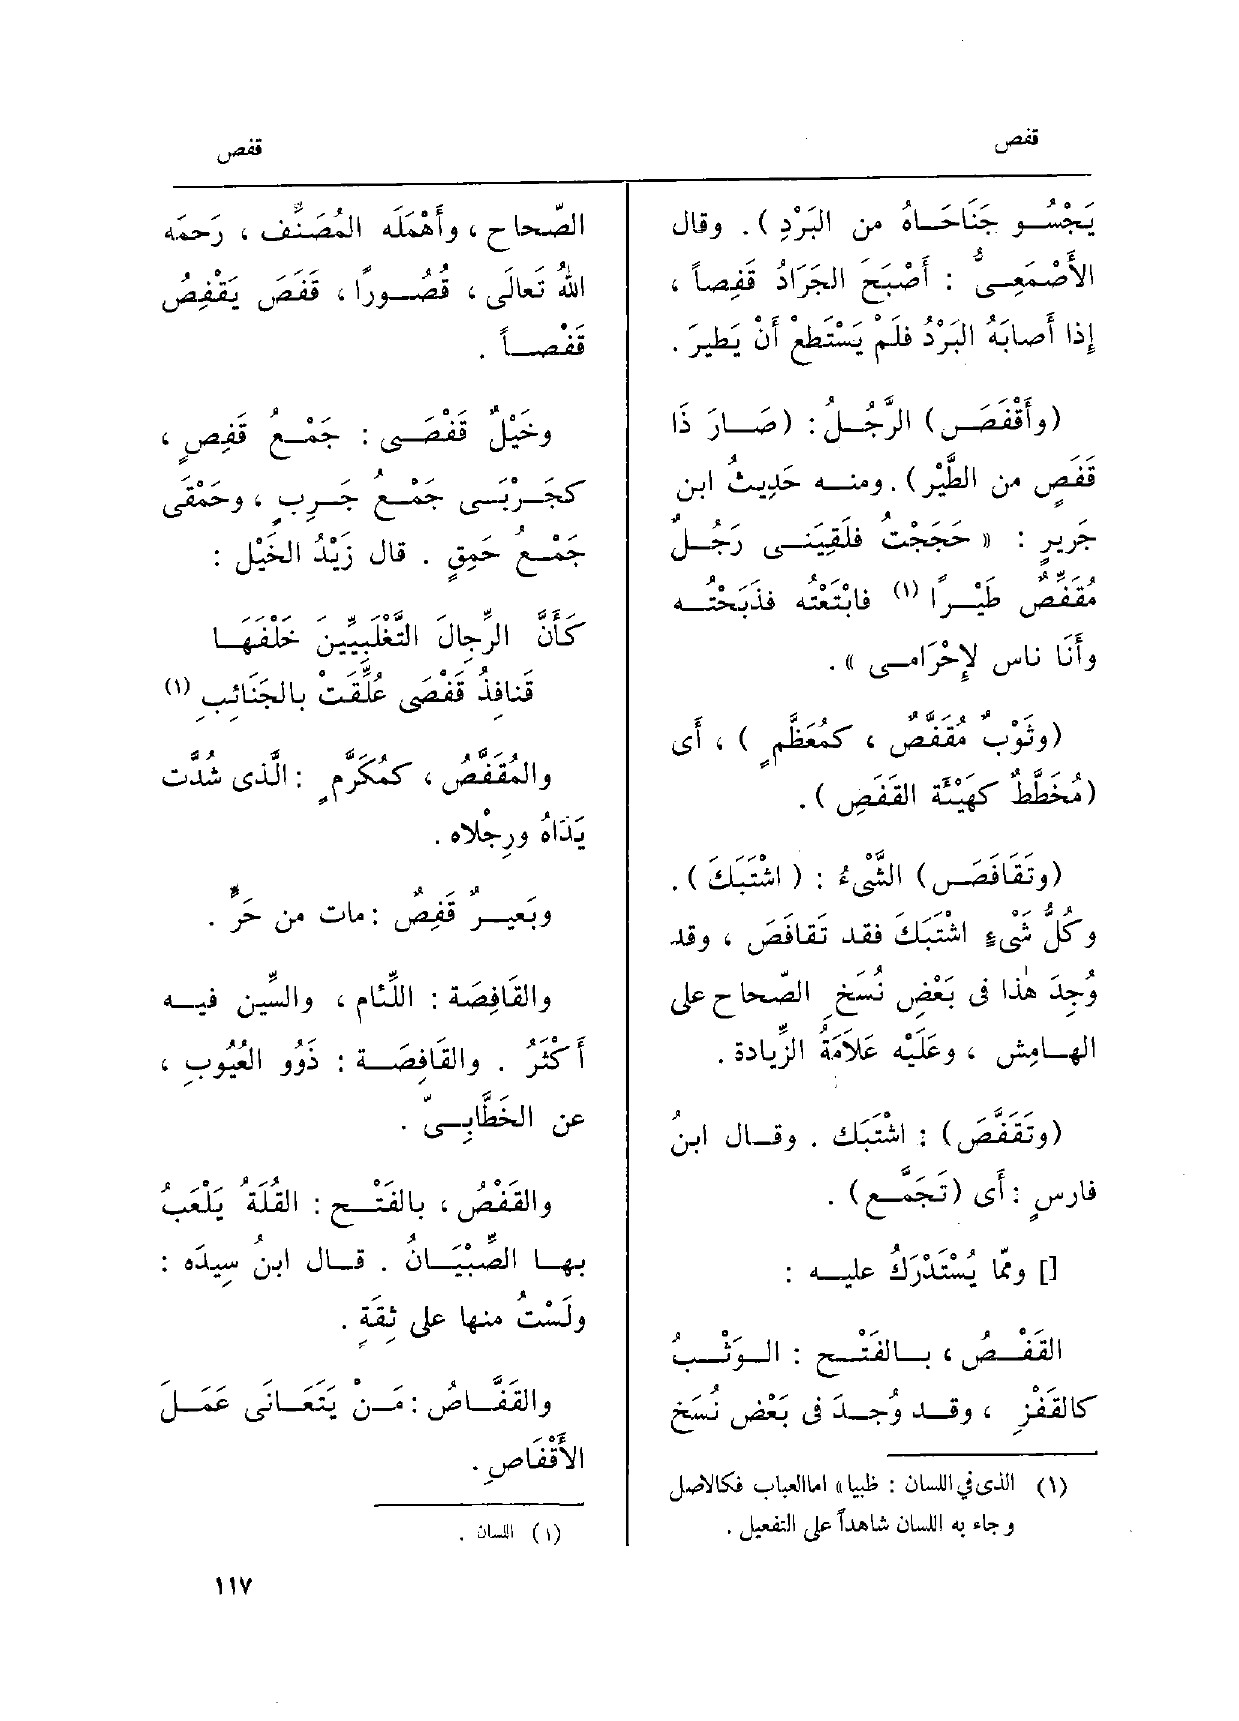 قفص
قفص
يَجْسُو جَنَاحَاهُ من البَرْدِ). وقال
الأَصْمَعِىُّ : أَصْبَحَ الجَرَادُ قَفِصاً ،
إِذا أَصابَهُ البَرْدُ فلَمْ يَسْتَطِعْ أَنْ يَطيرَ .
(وأَقْفَصَ) الرَّجُلُ : (صَارَ ذَا
قَفَصٍ من الطَّيْرِ) . ومنه حَدِيثُ ابن
جَريرٍ : « حَجَجْت فلَقِيَنى رَجُلٌ
مُقَفِّصٌ طَيْرًا (١) فابْتَعْتُه فذَبَحْتُه
وأَنَا ناس لإِحْرَامى » .
(وثَوْبٌ مُقَفَّصٌ ، كمُعَظَّمٍ ) ، أَى
(مُخَطَّطٌ كهَيْئَة القَفَصِ ) .
(وتَقَافَصَ) الشَّىْءُ : ( اشْتَبَكَ ) .
وكُلُّ شَىْءٍ اشْتَبَكَ فقد تَقافَصَ ، وقد
وُجِدَ هٰذا فى بَعْضِ نُسَخِ الصّحاح على
الهامِش ، وعَلَيْه عَلاَمَةُ الزِّيادة .
(وتَقَفَّصَ) : اشْتَبَك . وقال ابنُ
فارسٍ : أَى (تَجَمَّع) .
[] وممّا يُسْتَدْرَكُ عليه :
القَفْصُ ، بالفَتْح : الوَثْبُ
كالقَفْزِ ، وقد وُجِدَ فى بَعْض نُسَخ
(١) الذى في اللسان : ظبيا» اما العباب فكالاصل
و جاء به اللسان شاهداً على التفعيل .
الصّحاح ، وأَهْمَلَه المُصَنِّف ، رَحمَه
اللهُ تَعالَى ، قُصُورًا ، قَفَصَ يَقْفِصُ
قَفْصاً .
وخَيْلٌ قَفْصَى : جَمْع قَفِصٍ ،
كجَرْبَى جَمْعُ جَرِبٍ ، وحَمْقَى
جَمْعُ حَمِقٍ . قال زَيْدُ الخَيْل :
كَأَنَّ الرِّجالَ التَّغْلَبِيِّينَ خَلْفَهَا
قَنافِذُ قَفْصَى عُلِّقَتْ بالجَنائبِ (١)
والمُقَفَّصُ ، كمُكَرَّمٍ : الَّذى شُدَّت
يَدَاهُ ورِجْلاه .
وبَعيرٌ قَفِصٌ : مات من حَرٍّ .
والقَافِصَة : اللِّئام ، والسِّين فيه
أَكْثَرُ . والقَافِصَة : ذَوُو العُيُوبِ ،
عن الخَطَّابِىّ .
والقَفْصُ ، بالفَتْح : القُلَةُ يَلْعَبُ
بها الصِّبْيَانُ . قال ابنُ سِيدَه :
ولَسْتُ منها على ثِقَةٍ .
والقَفَّاصُ : مَنْ يَتَعَانَى عَمَلَ
الأَقْفَاصِ .
(١) اللسان .
١١٧